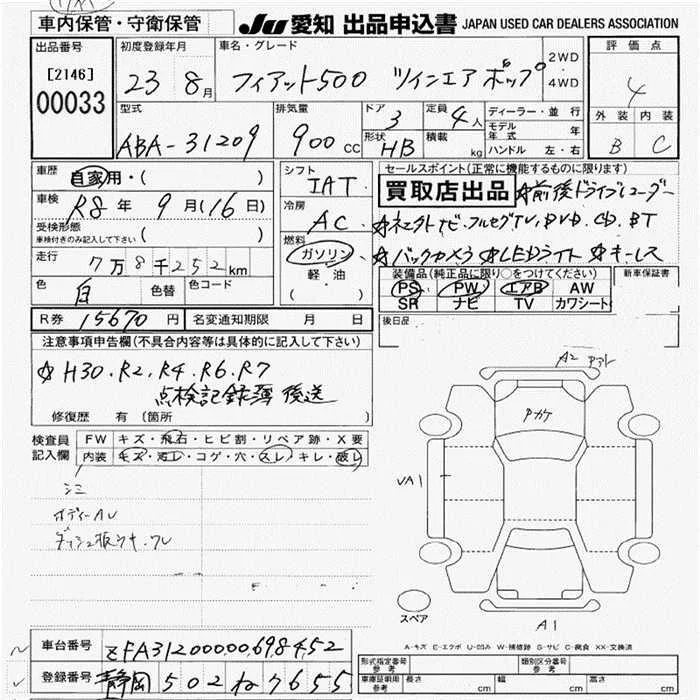 車内保管・守衛保管
JU 愛知 出品申込書 JAPAN USED CAR DEALERS ASSOCIATION
出品番号
[2146]
00033
初度登録年月
23 8月
車名・グレード
フィアット500 ツインエア ポップ
2WD
・
4WD
評価点
4
外装 内装
B C
型式
ABA-31209
排気量
900 cc
ドア
3
定員
4人
形状
HB
積載
kg
ディーラー・並行
モデル年式 年
ハンドル 左・右
車歴
自家用・( )
車検
R8年 9月(16日)
受検形態
車検付きのみ記入して下さい ( )
走行
7万8千252km
色
白
色替
色コード
シフト
IAT
冷房
AC
燃料
ガソリン
軽・油
( )
セールスポイント(正常に機能するものに限ります)
買取店出品 ☆前後ドライブレコーダー
☆ネェクトナビ・フルセグTV, DVD, CD, BT
☆バックカメラ ☆LEDライト ☆キーレス
装備品(純正品に限り○をつけてください)
PS PW エアB AW
SR ナビ TV カワシート
新車保証書
後日品
R券 15670円
名変通知期限 月 日
注意事項申告欄(不具合内容等は具体的に記入して下さい)
☆H30.R2.R4.R6.R7
点検記録簿 後送
修復歴 有(箇所 )
検査員記入欄
FW キズ・飛石・ヒビ割・リペア跡・X要
内装 キズ・汚レ・コゲ・穴・スレ・キレ・破レ
シミ
ボディーAU
A2
Pカケ
UA1
A1
スペア
A-キズ E-エクボ U-凹み W-補修跡 S-サビ C-腐食 XX-交換済
車台番号 ZFA31200000698452
登録番号 静岡 502 ね7655
形式指定番号 参考
類別区分番号 参考
車庫証明用 参考
長さ cm
幅 cm
高さ cm